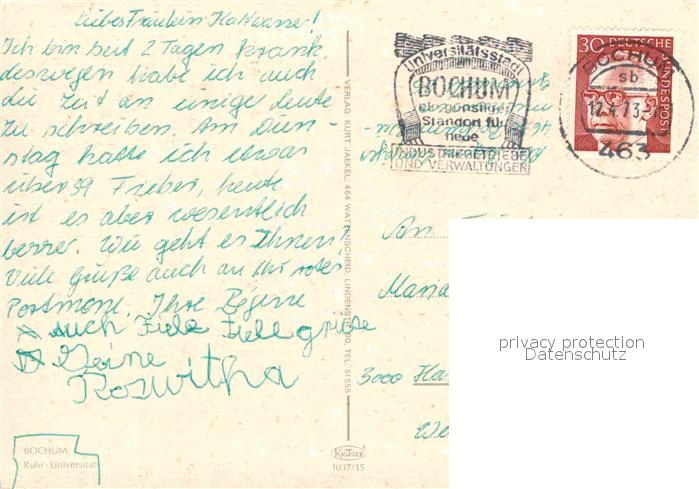 Liebes Fräulein Kaltwasser!
Ich bin seit 2 Tagen krank,
deswegen habe ich auch
die Zeit an einige Leute
zu schreiben. Am Dien-
stag hatte ich etwas
über 39 Fieber, heute
ist es aber wesentlich
besser. Wie geht es Ihnen?
Viele Grüße auch an Ihr rotes
Portmone. Ihre
Auch Fiele Fiele grüße
Deine
Roswitha
BOCHUM
Ruhr-Universität
VERLAG KURT JAEKEL, 464 WATTENSCHEID, LINDENSTR. 90, TEL. 51555
KRÜGER
1037/15
Universitätsstadt
BOCHUM
ein günstiger
Standort für
neue
INDUSTRIEBETRIEBE
UND VERWALTUNGEN
30 DEUTSCHE
BUNDESPOST
BOCHUM
sb
12.4.73
463
An
Maria
3000 Ha
We
privacy protection
Datenschutz